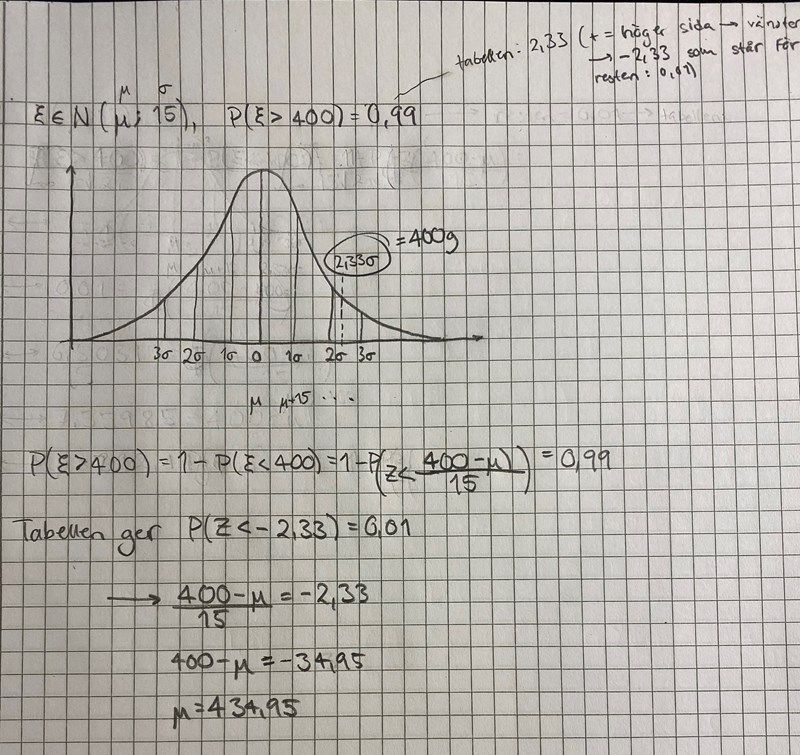 tabellen: 2,33 (+ = höger sida → vänster
→ -2,33 som står för
resten: 0,01)
μ σ
ξ ∈ N (μ; 15), P(ξ > 400) = 0,99
2,33σ = 400g
3σ 2σ 1σ 0 1σ 2σ 3σ
μ μ+15 ...
P(ξ>400) = 1 - P(ξ<400) = 1 - P(Z< (400-μ)/15) = 0,99
Tabellen ger P(Z < -2,33) = 0,01
→ (400-μ)/15 = -2,33
400-μ = -34,95
μ = 434,95